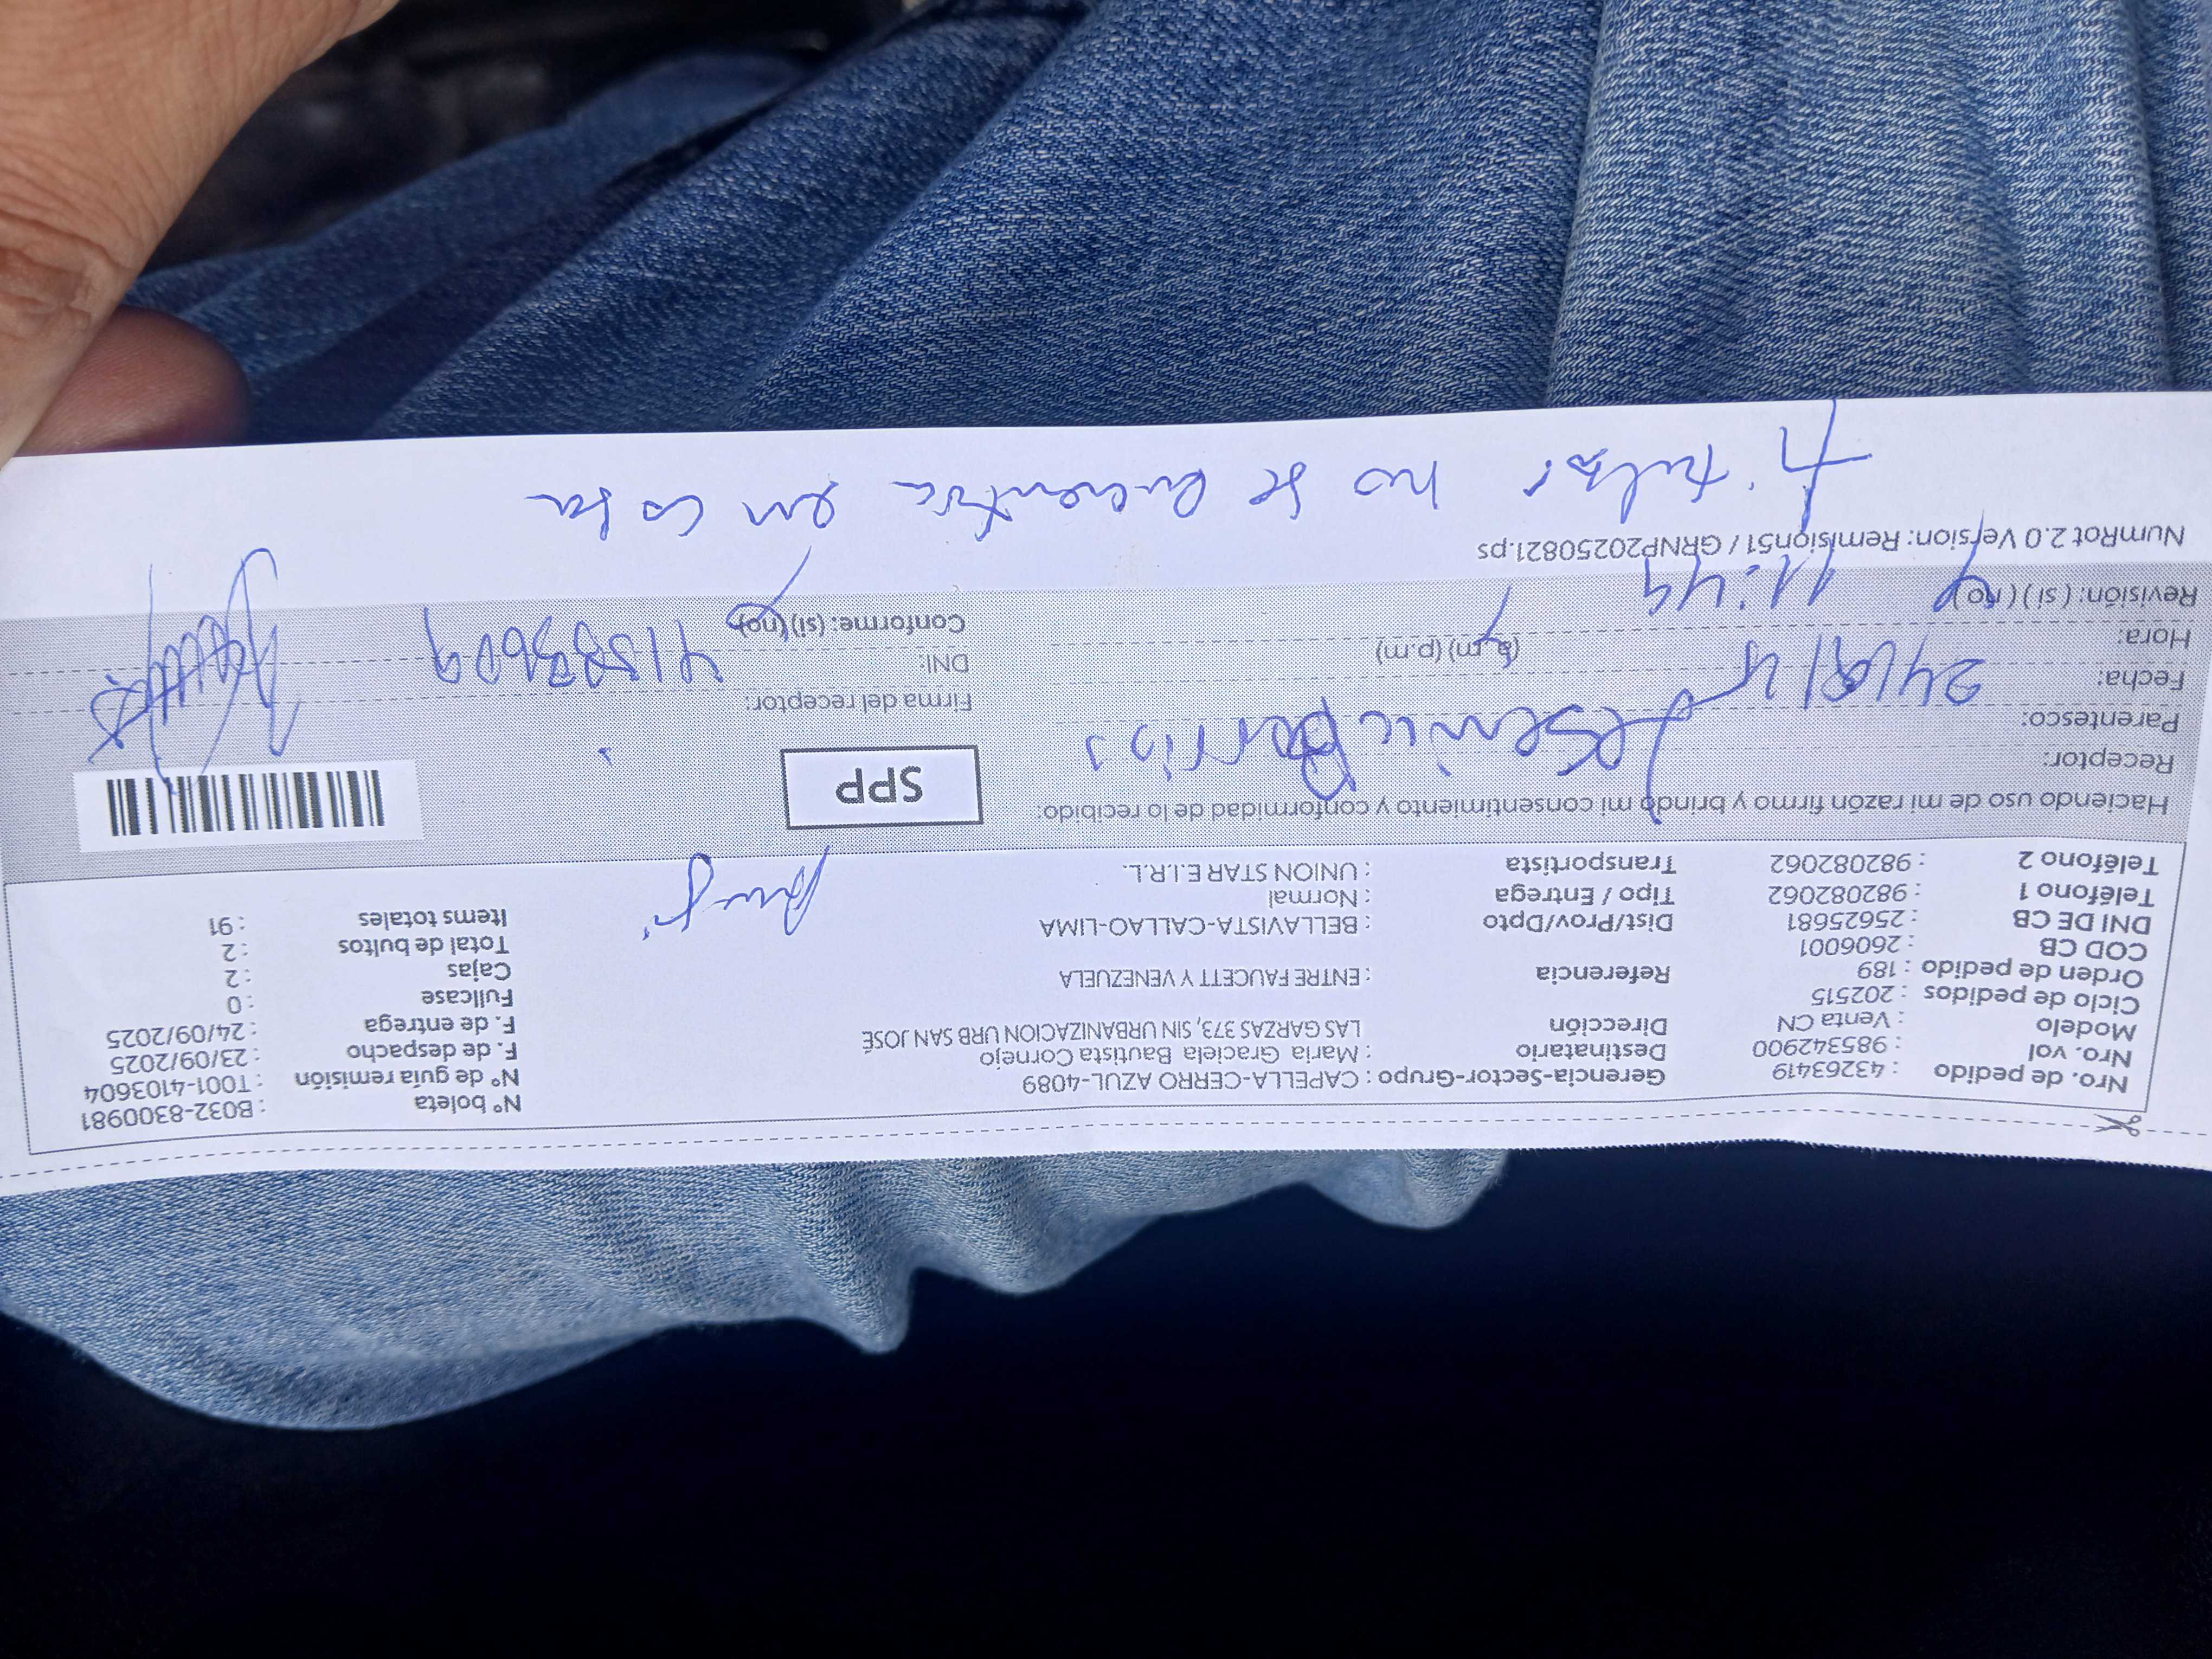 Nro. de pedido : 43263419
Nro. vol : 985342900
Modelo : Venta CN
Ciclo de pedidos : 202515
Orden de pedido : 189
COD CB : 2606001
DNI DE CB : 25625681
Teléfono 1 : 982082062
Teléfono 2 : 982082062
Gerencia-Sector-Grupo : CAPELLA-CERRO AZUL-4089
Destinatario : Maria Graciela Bautista Cornejo
Dirección LAS GARZAS 373, SIN URBANIZACION URB SAN JOSÉ
Referencia : ENTRE FAUCETT Y VENEZUELA
Dist/Prov/Dpto : BELLAVISTA-CALLAO-LIMA
Tipo / Entrega : Normal
Transportista : UNION STAR E.I.R.L.
N° boleta : B032-8300981
N° de guia remisión : T001-4103604
F. de despacho : 23/09/2025
F. de entrega : 24/09/2025
Fullcase : 0
Cajas : 2
Total de bultos : 2
Items totales : 91
Haciendo uso de mi razón firmo y brindo mi consentimiento y conformidad de lo recibido:
SPP
Receptor:
Parentesco:
Fecha:
Hora: 11:49 (a.m) (p.m)
Revisión: (si) (no)
Firma del receptor:
DNI:
Conforme: (si) (no)
NumRot 2.0 Version: Remision51 / GRNP20250821.ps
titular no se encuentra en casa